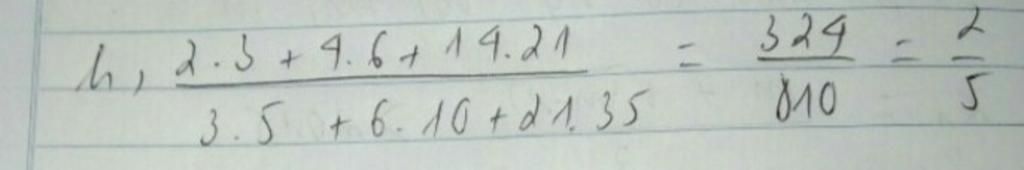 h, 2.3 + 4.6 + 14.21 = 324 = 2
3.5 + 6.10 + 21.35 810 5